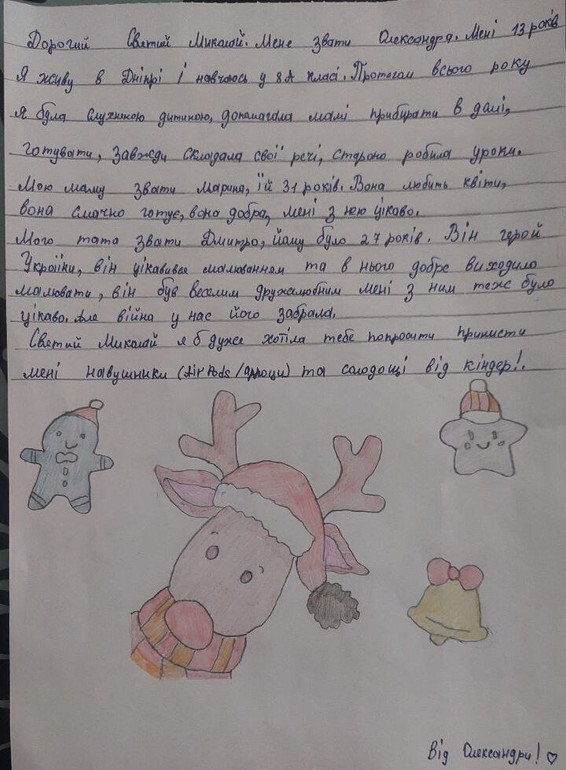 Дорогий Святий Миколай. Мене звати Олександра. Мені 13 років
Я живу в Дніпрі і навчаюсь у 8А класі. Протягом всього року
я була слухняною дитиною, допомагала мамі прибирати в домі,
готувати, завжди складала свої речі, старано робила уроки.
Мою маму звати Марина, їй 31 років. Вона любить квіти,
вона смачно готує, вона добра, мені з нею цікаво.
Мого тата звати Дмитро, йому було 27 років. Він герой
України, він цікавився малюванням та в нього добре виходило
малювати, він був веселим дружелюбним мені з ним теж було
цікаво. Але війна у нас його забрала.
Святий Миколай я б дуже хотіла тебе попросити принисти
мені навушники (AirPods/ ) та солодощі від кіндер!.
Від Олександри! ♡